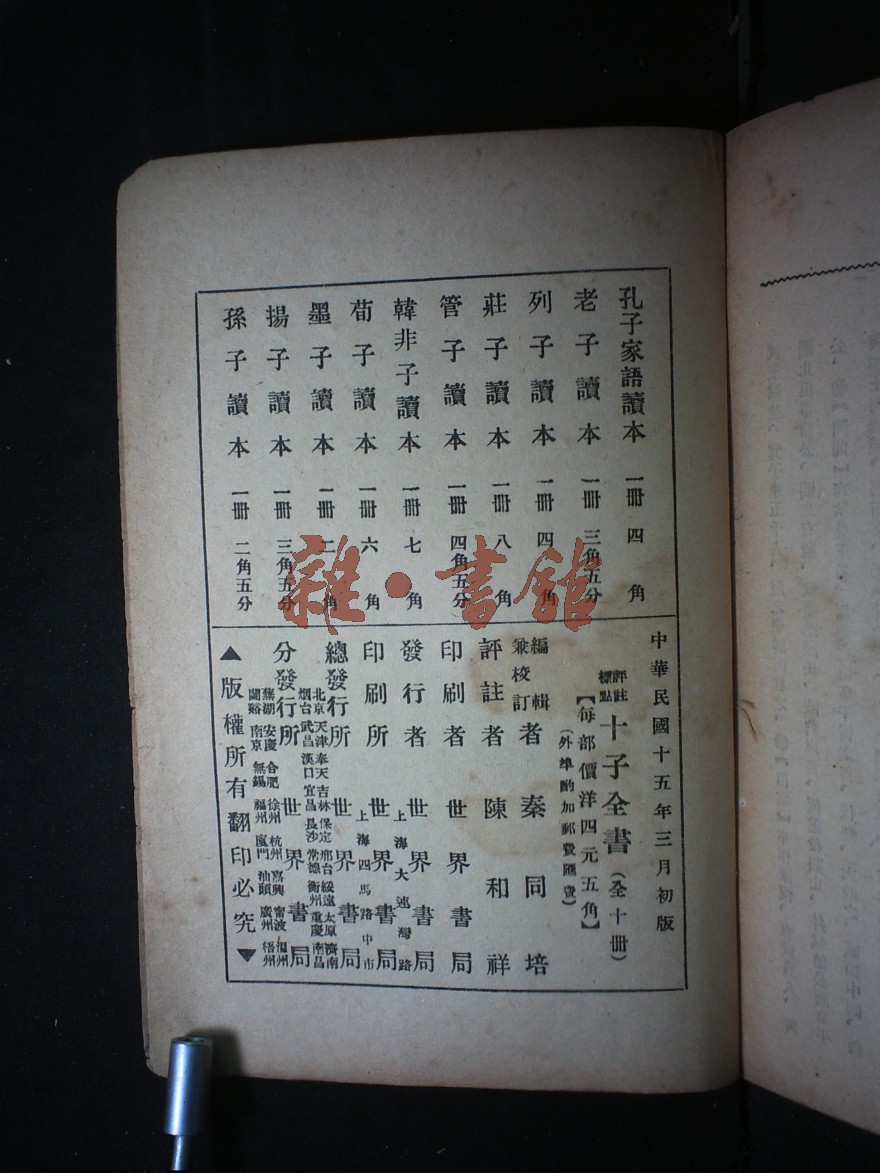 孔子家語讀本 一冊 四角
老子讀本 一冊 三角五分
列子讀本 一冊 四角
莊子讀本 一冊 八角
管子讀本 一冊 四角五分
韓非子讀本 一冊 七角
荀子讀本 一冊 六角
墨子讀本 一冊 二角
揚子讀本 一冊 三角五分
孫子讀本 一冊 二角五分
雜·書館
中華民國十五年三月初版
評註標點 十子全書（全十冊）
【每部價洋四元五角】
（外埠酌加郵費匯費）
編輯兼校訂者 秦同培
評註者 陳和祥
印刷者 世界書局
發行者 世界書局
上海大連灣路
印刷所 世界書局
上海四馬路中市
總發行所 世界書局
北京 天津 奉天 吉林 保定 邢台 綏遠 太原 濟南
烟台 武昌 漢口 宜昌 長沙 常德 衡州 重慶 南昌
分發行所 世界書局
蕪湖 安慶 合肥 徐州 杭州 嘉興 甯波 溫州
蘭谿 南京 無錫 福州 廈門 汕頭 廣州 梧州
▲版權所有翻印必究▼